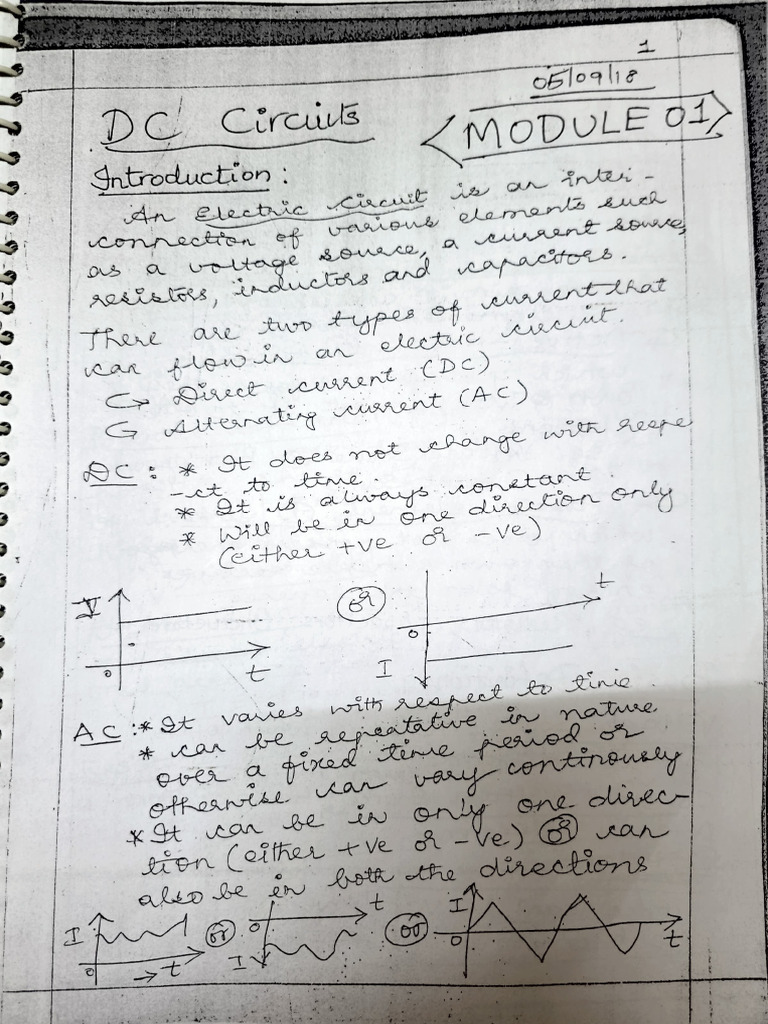 1
05/09/18
DC Circuits
MODULE 01
Introduction:
An Electric Circuit is an inter-
connection of various elements such
as a voltage source, a current source,
resistors, inductors and capacitors.
There are two types of current that
can flow in an electric circuit.
↳ Direct current (DC)
↳ Alternating current (AC)
DC: * It does not change with respe
-ct to time.
* It is always constant
* Will be in one direction only
(either +ve or -ve)
0
t
or
t
0
I
AC: * It varies with respect to time.
* can be repeatative in nature
over a fixed time period or
otherwise can vary continously
* It can be in only one direc-
tion (either +ve or -ve) or can
also be in both the directions
I
0
→ t
or
t
0
I
or
I
0
t